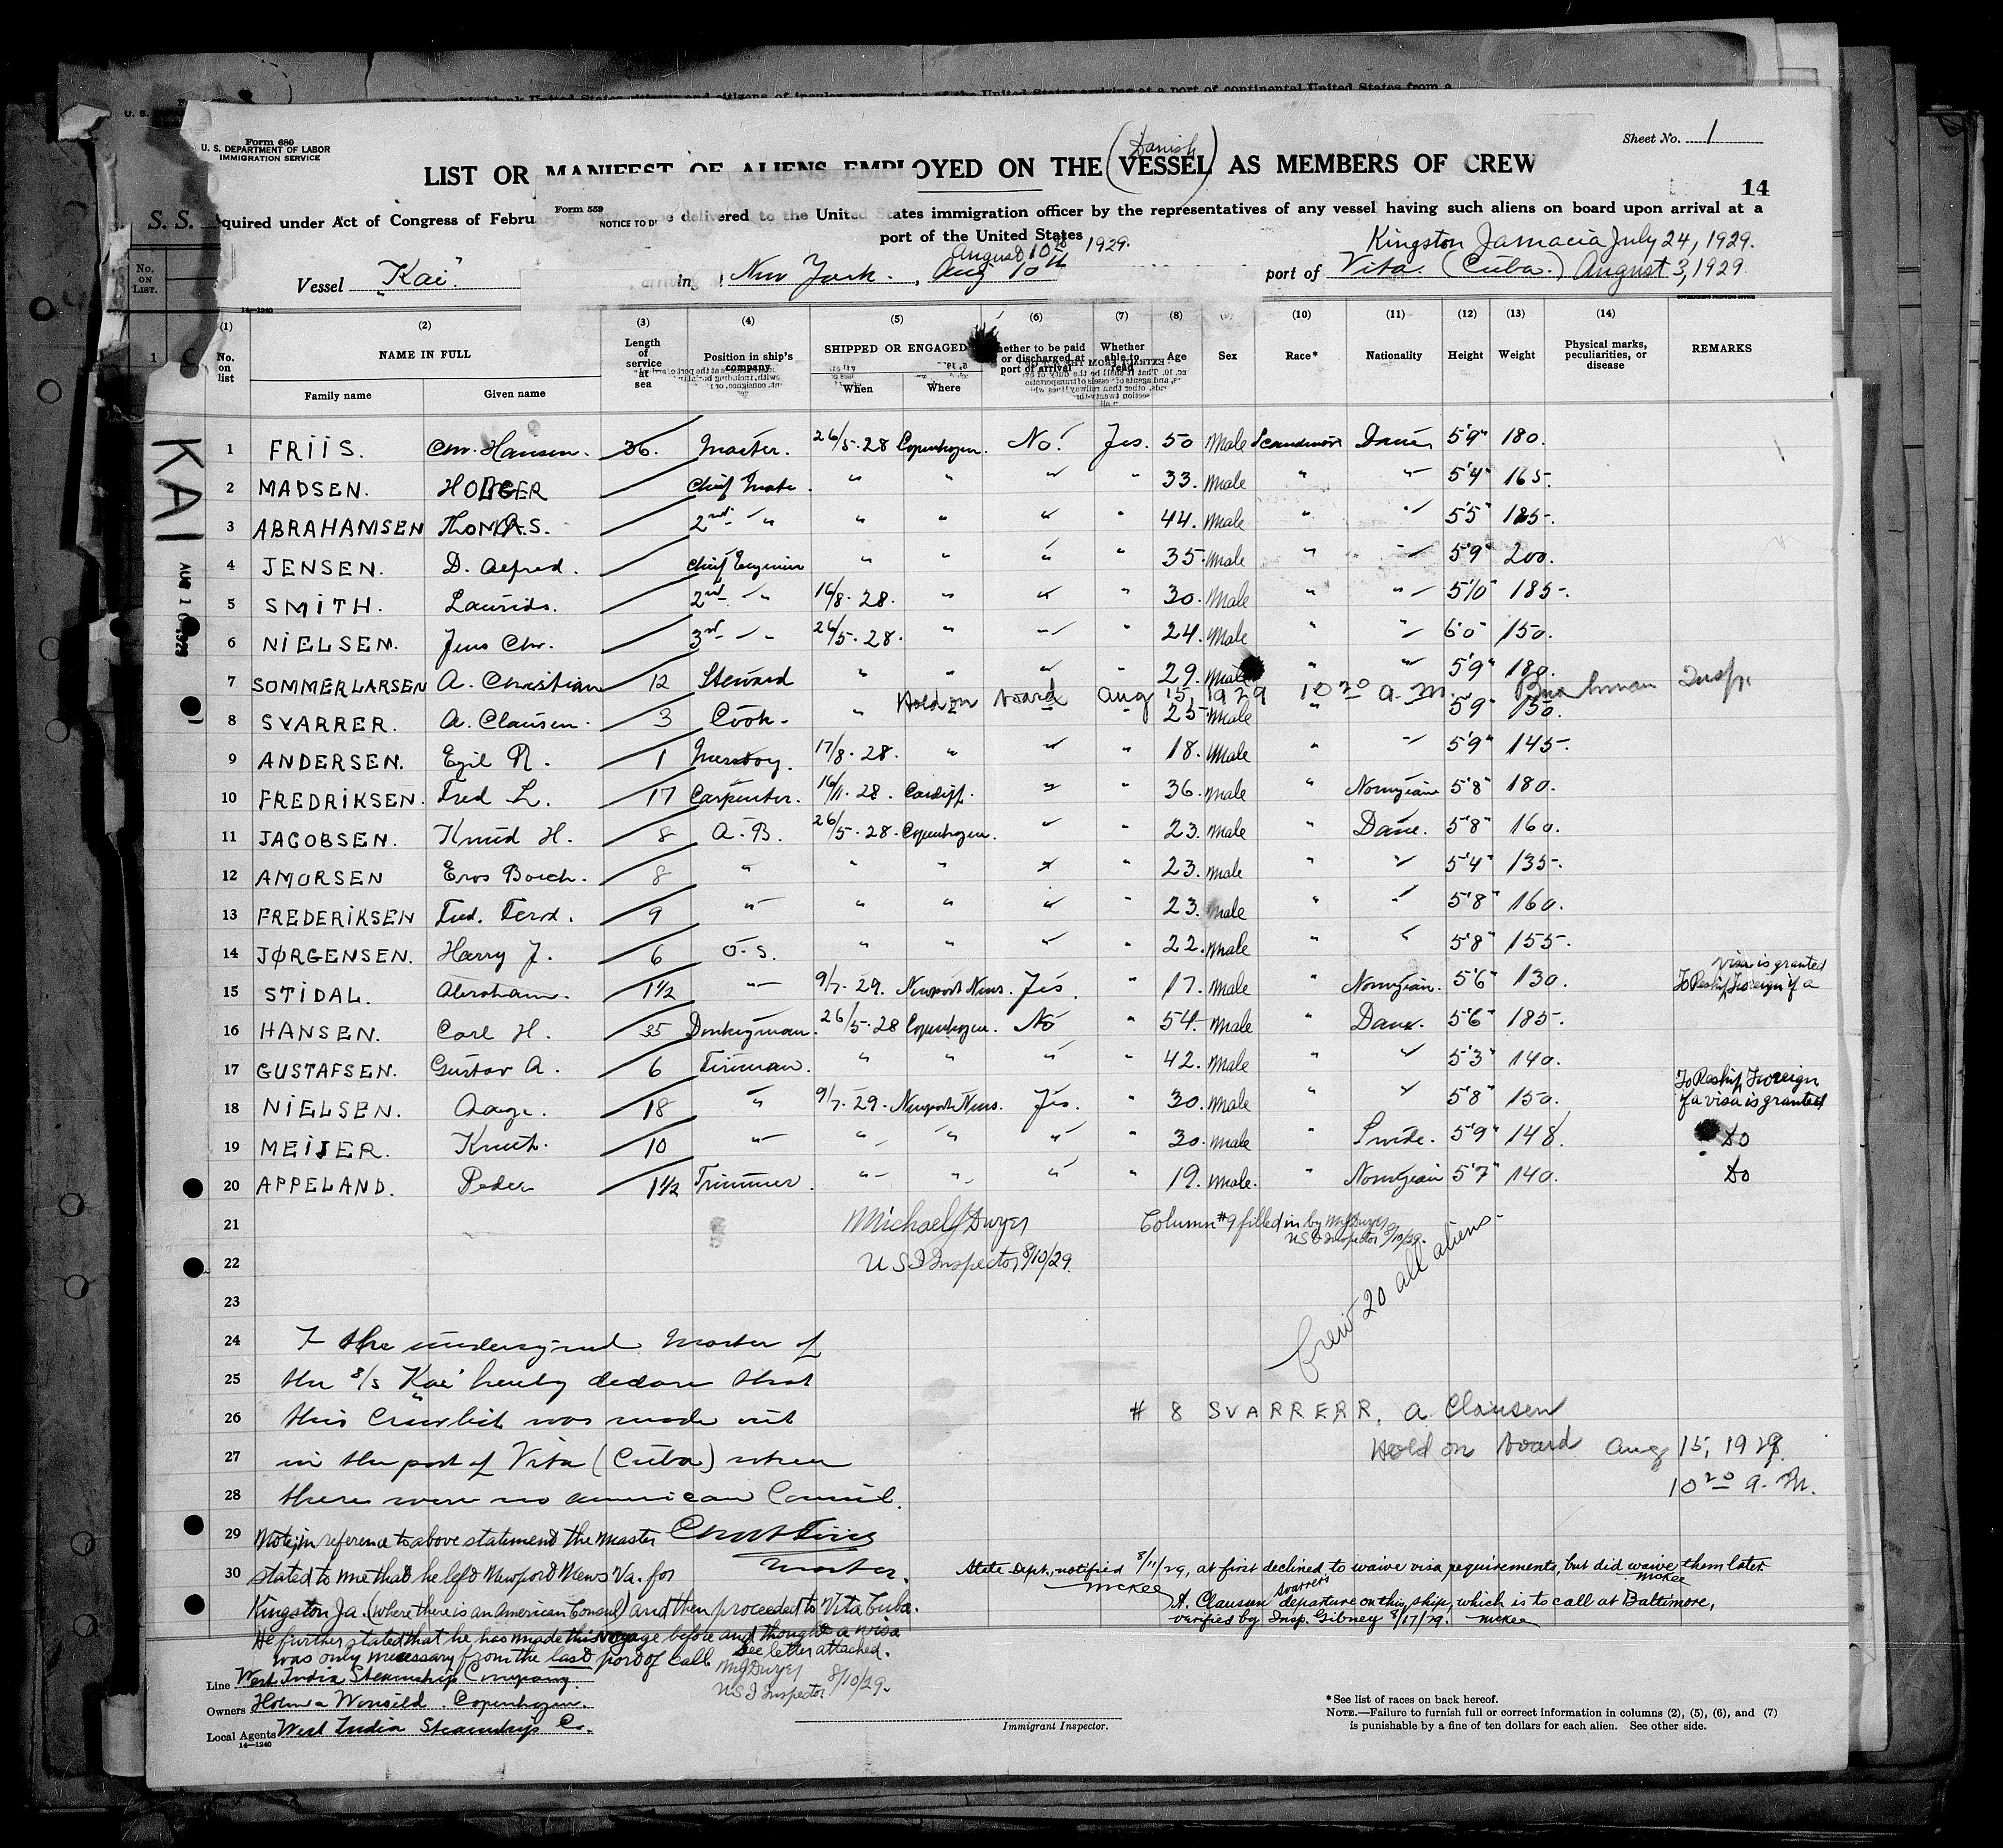 Form 680
U. S. DEPARTMENT OF LABOR
IMMIGRATION SERVICE
Sheet No. 1
Danish
LIST OR MANIFEST OF ALIENS EMPLOYED ON THE (VESSEL) AS MEMBERS OF CREW
14
S. S.
quired under Act of Congress of Februar
Form 559
NOTICE TO
be delivered to the United States immigration officer by the representatives of any vessel having such aliens on board upon arrival at a
port of the United States
August 10th 1929.
Kingston Jamacia July 24, 1929.
Vessel "Kai" arriving New York., Aug 10th port of Vita. (Cuba.) August 3, 1929.
14—1240
(1) (2) (3) (4) (5) (6) (7) (8) (9) (10) (11) (12) (13) (14)
No. on list NAME IN FULL Length of service at sea Position in ship's company SHIPPED OR ENGAGED Whether to be paid or discharged at port of arrival Whether able to read Age Sex Race* Nationality Height Weight Physical marks, peculiarities, or disease REMARKS
Family name Given name When Where
KAI
AUG 10 1929
1 FRIIS. Chr. Hansen. 36. Master. 26/5-28 Copenhagen. No. Yes. 50 Male Scandinav Dane 5'9" 180.
2 MADSEN. HOLGER Chief Mate. " " " " 33. Male " " 5'4" 165.
3 ABRAHAMSEN THOMAS. 2nd " " " " " 44. Male " " 5'5" 185.
4 JENSEN. D. Alfred. Chief Engineer " " " " 35. Male " " 5'9" 200.
5 SMITH. Laurids. 2nd " 16/8-28. " " " 30. Male " " 5'10" 185.
6 NIELSEN. Jens Chr. 3rd " 26/5-28. " " " 24. Male " " 6'0" 150.
7 SOMMERLARSEN A. Christian 12 Steward " " " " 29. Male " " 5'9" 180.
Held on board Aug 15, 1929 10 20 a.m. Insp.
8 SVARRER. A. Clausen. 3 Cook. " " " " 25. Male " " 5'9" 150.
9 ANDERSEN. Egil R. 1 Messboy. 17/8-28. " " " 18. Male " " 5'9" 145.
10 FREDRIKSEN. Fred L. 17 Carpenter. 16/11-28. Cardiff. " " 36. Male " Norwegian 5'8" 180.
11 JACOBSEN. Knud H. 8 A.B. 26/5-28 Copenhagen. " " 23. Male " Dane. 5'8" 160.
12 AMORSEN 8 " " " " " 23. Male " " 5'4" 135.
13 FREDERIKSEN Fred. Ferd. 9 " " " " " 23. Male " " 5'8" 160.
14 JØRGENSEN. Harry J. 6 O.S. " " " " 22. Male " " 5'8" 155.
15 STIDAL. Abraham. 1 1/2 " 9/7-29. Newport News. Yes. " 17. Male " Norwegian. 5'6" 130. To Reship Foreign if a visa is granted
16 HANSEN. Carl H. 35 Donkeyman. 26/5-28 Copenhagen. No " 54. Male " Dane. 5'6" 185.
17 GUSTAFSEN. Gustav A. 6 Fireman. " " " " 42. Male " " 5'3" 140.
18 NIELSEN. Aage. 18 " 9/7-29. Newport News. Yes. " 30. Male " " 5'8" 150. To Reship Foreign if a visa is granted
19 MEIJER. Knuth. 10 " " " " " 30. Male " Swede. 5'9" 148. Do
20 APPELAND. Peder 1 1/2 Trimmer. " " " " 19. Male. " Norwegian 5'7" 140. Do
21 Michael J Dwyer Column #9 filled in by M J Dwyer
US I Inspector 8/10/29.
22 U S I Inspector 8/10/29.
23 Crew 20 all aliens
24 I the undersigned Master of
25 the S/S "Kai" hereby declare that
26 this Crewlist was made out
# 8 SVARRERR, A. Clausen
27 in the port of Vita (Cuba) where
Held on board Aug 15, 1929.
10 20 a.m.
28 there were no american Consul.
29 Note; in reference to above statement the Master
Master.
30 stated to me that he left Newport News Va. for
Kingston Ja. (where there is an American Consul) and then proceeded to Vita Cuba.
He further stated that he has made this voyage before and thought a visa
was only necessary from the last port of call. See letter attached.
M J Dwyer
U S I Inspector 8/10/29.
State Dept., notified 8/11/29, at first declined to waive visa requirements, but did waive them later.
McKee McKee
A. Clausen Svarrer's departure on this ship, which is to call at Baltimore,
verified by Insp. Gibney 8/17/29. McKee
Line West India Steamship Company.
Owners Holm & Wonsild. Copenhagen.
Local Agents West India Steamship Co.
14—1240
Immigrant Inspector.
*See list of races on back hereof.
NOTE.—Failure to furnish full or correct information in columns (2), (5), (6), and (7)
is punishable by a fine of ten dollars for each alien. See other side.